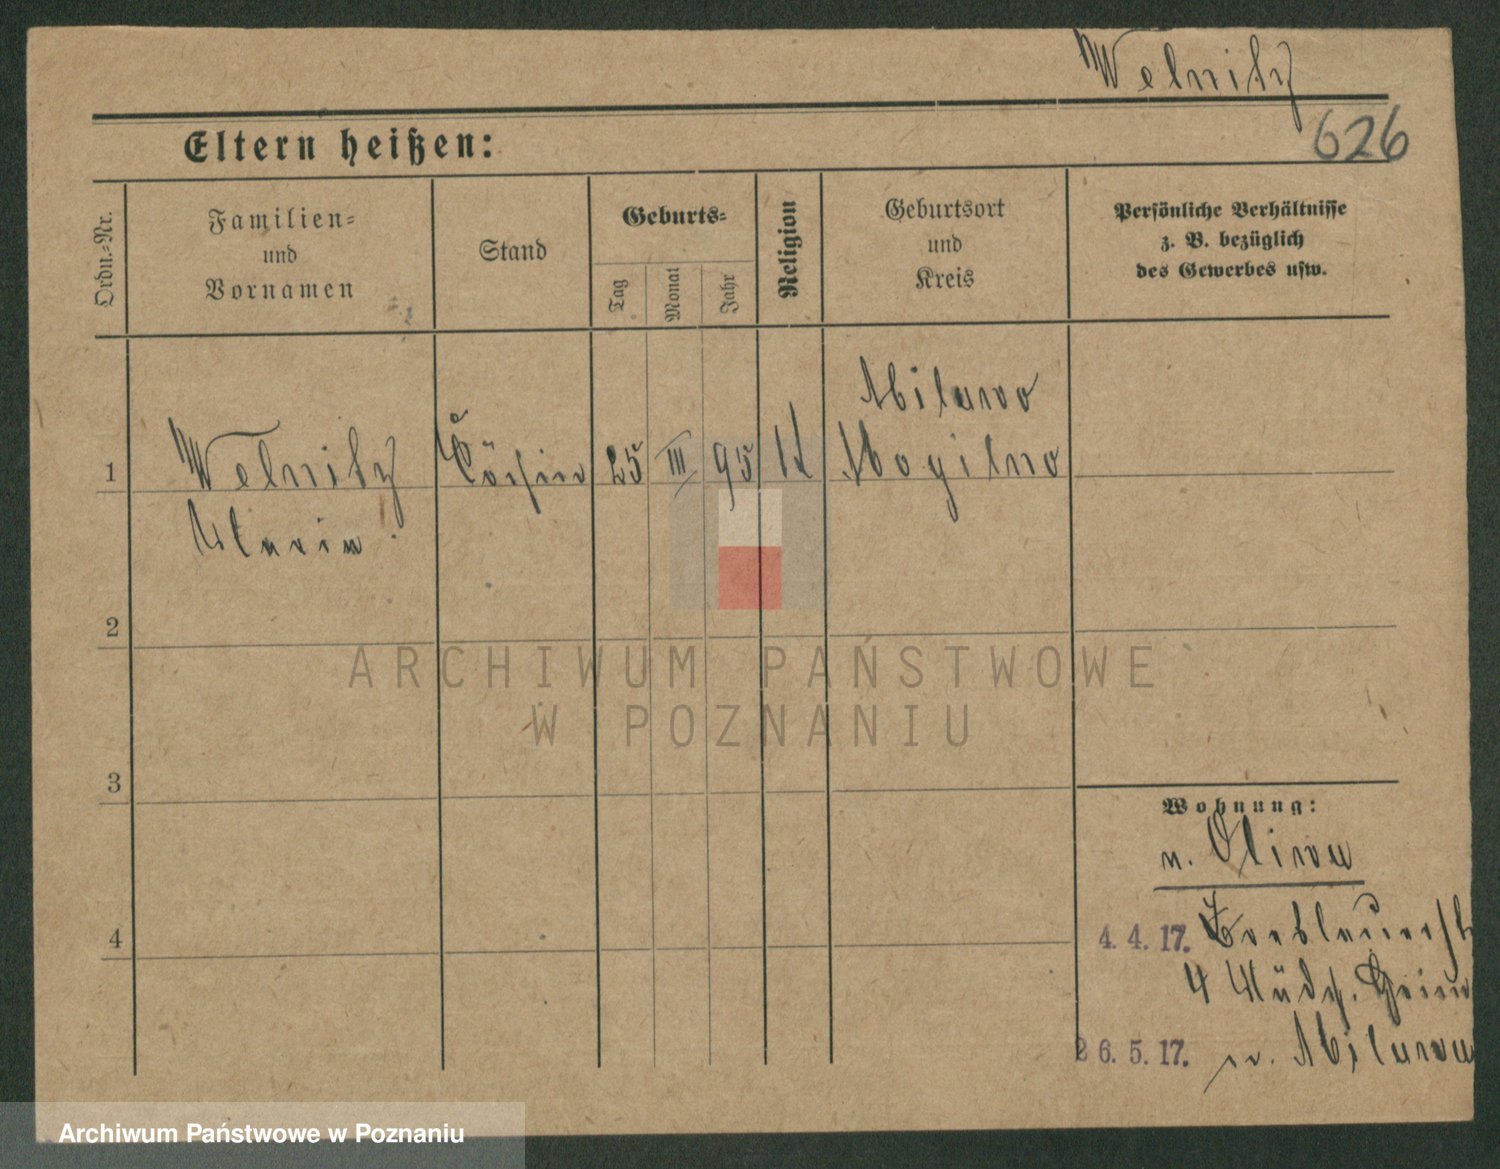 Welnitz
626
Eltern heißen:
Ordn.-Nr.
Familien-
und
Vornamen
Stand
Geburts-
Tag
Monat
Jahr
Religion
Geburtsort
und
Kreis
Persönliche Verhältnisse
z. B. bezüglich
des Gewerbes usw.
Milawo
1 Welnitz Köchin 25 III 95 K Mogilno
Maria
2
3
4
Wohnung:
v. Oliva
4. 4. 17. Breslauerst
4 Mädch. Heim
26. 5. 17. n.
ARCHIWUM PAŃSTWOWE
W POZNANIU
Archiwum Państwowe w Poznaniu